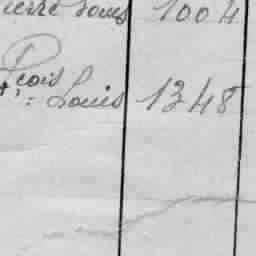 Pierre Louis 1004
Pcois
St: Louis 1348